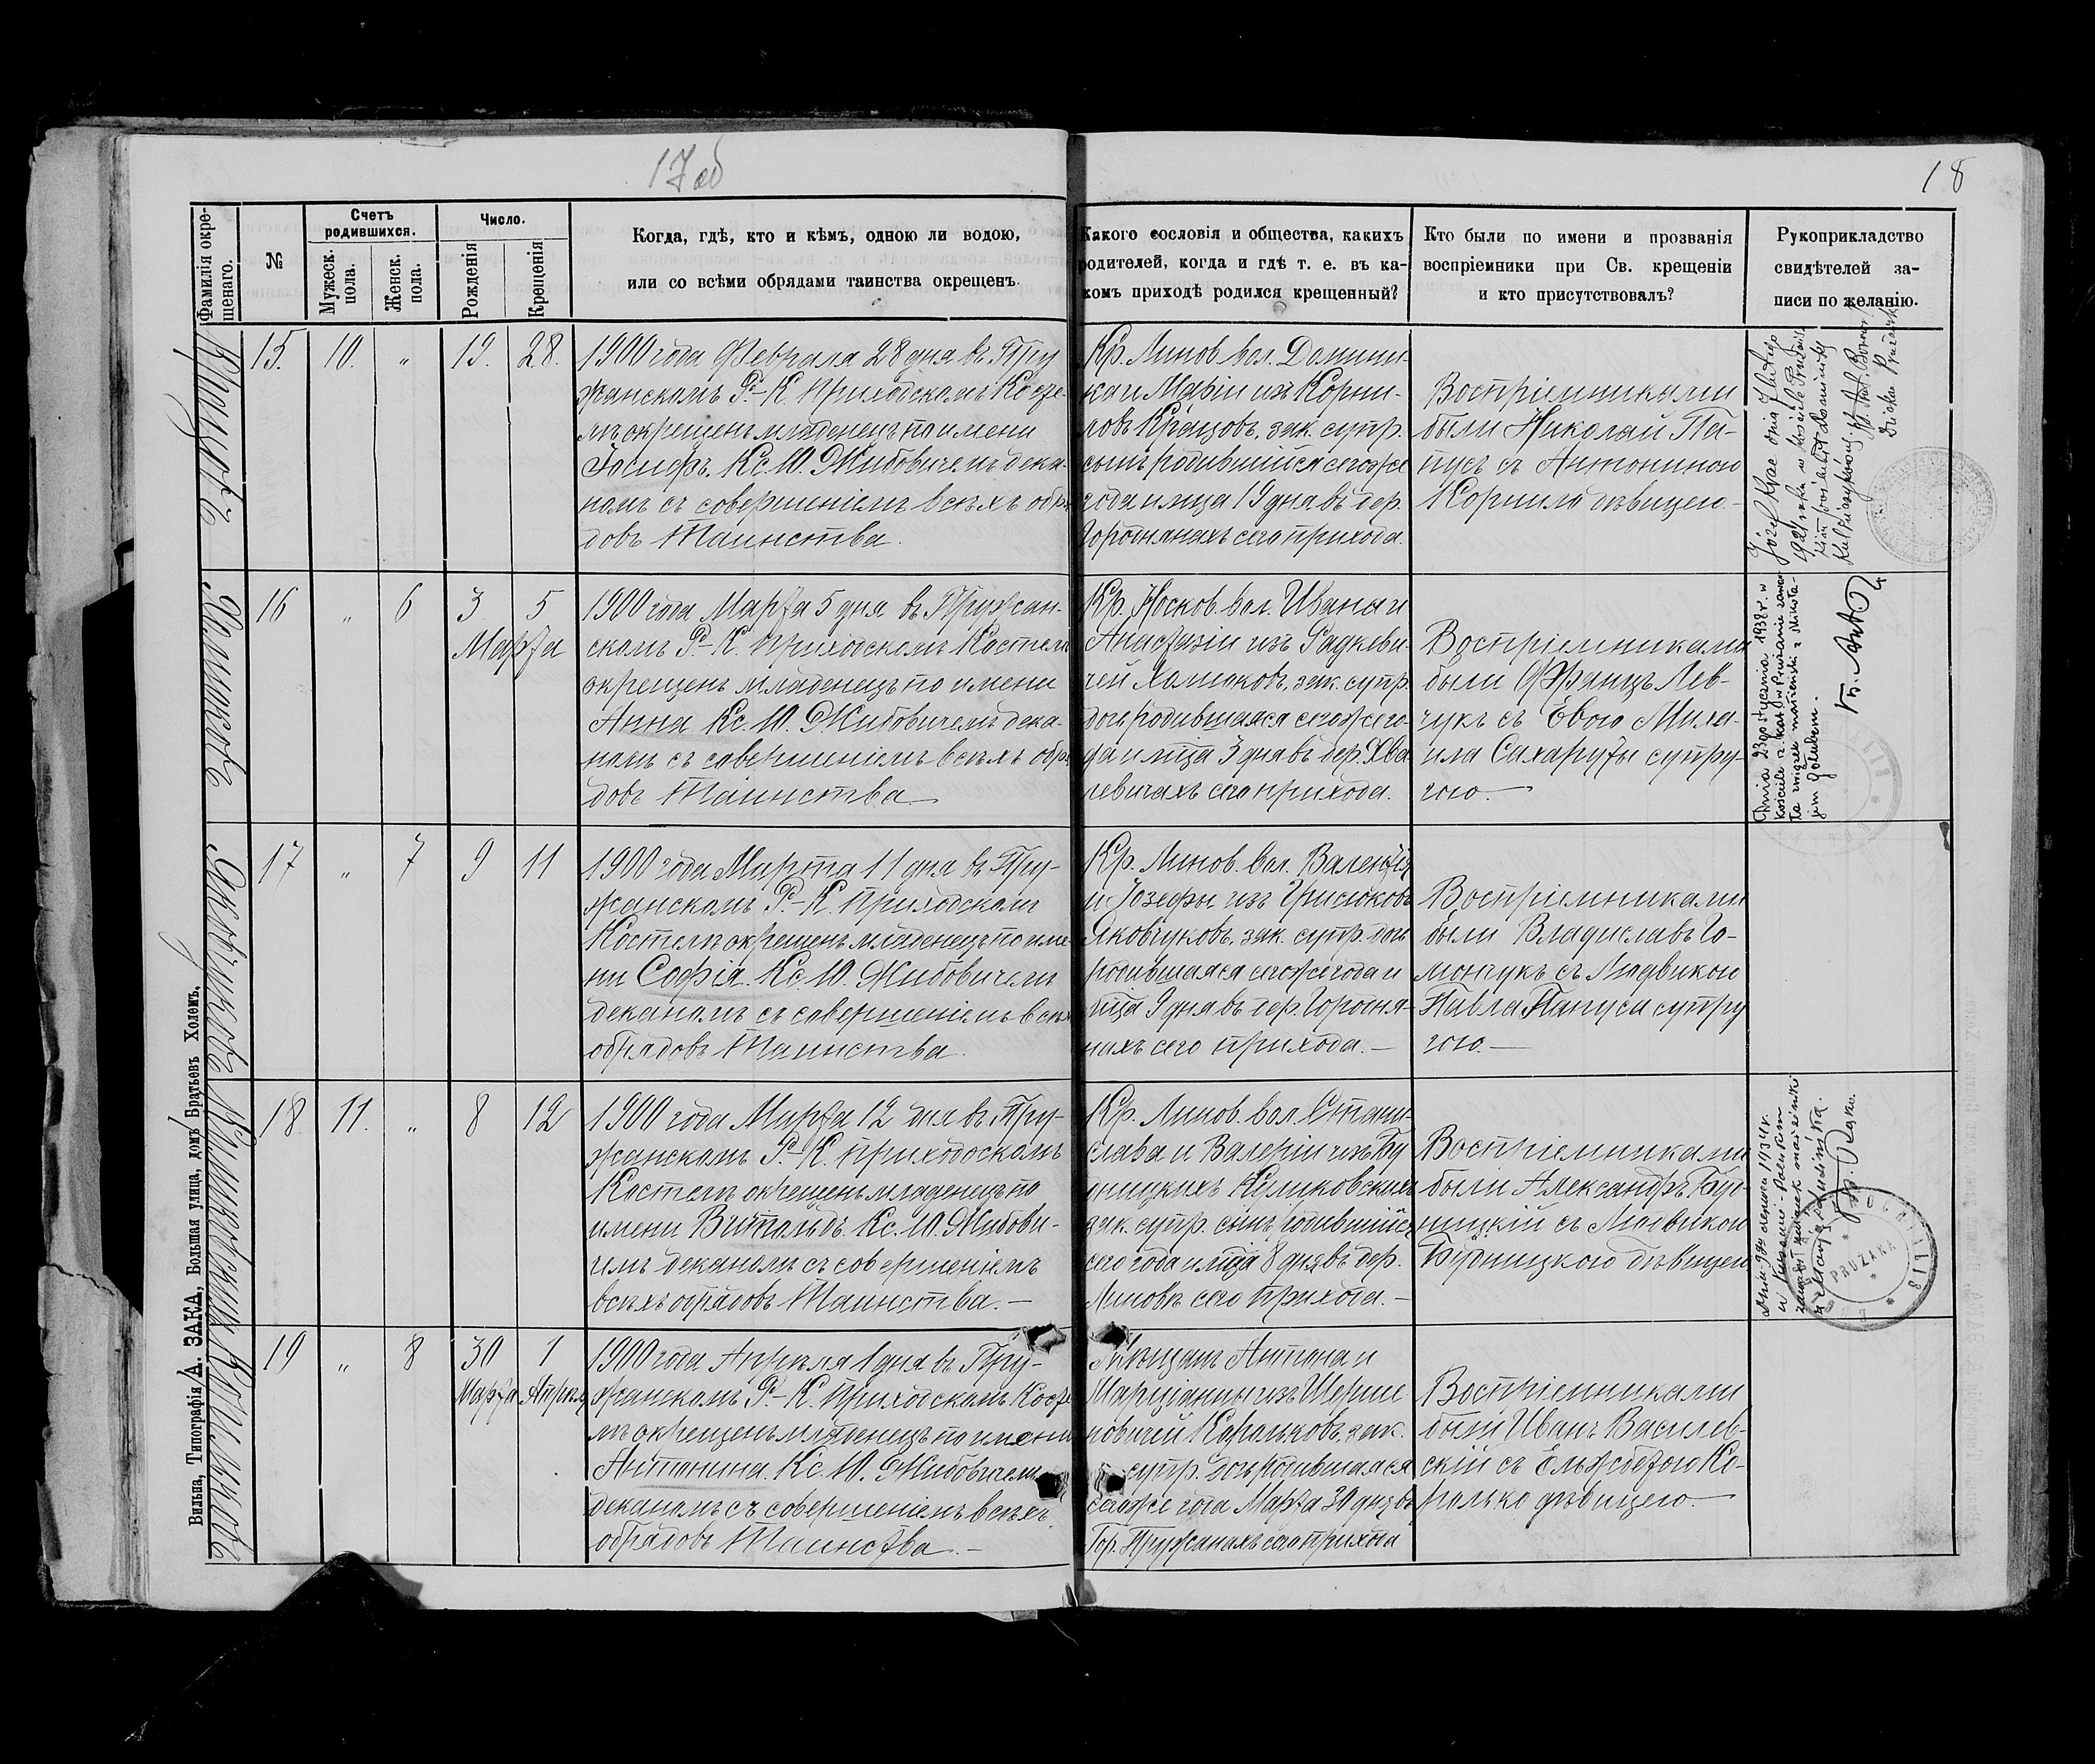 17 об
18
Фамилія окре-
щенаго.
№
Счетъ
родившихся.
Мужеск.
пола.
Женск.
пола.
Число.
Рожденія
Крещенія
Когда, гдѣ, кто и кѣмъ, одною ли водою,
или со всѣми обрядами таинства окрещенъ.
Какого сословія и общества, какихъ
родителей, когда и гдѣ т. е. въ ка-
комъ приходѣ родился крещенный?
Кто были по имени и прозванія
воспріемники при Св. крещеніи
и кто присутствовалъ?
Рукоприкладство
свидѣтелей за-
писи по желанію.
15. 10. „ 19. 28.
1900 года Февраля 28 дня въ Пру
жанскомъ Р.-К. Приходскомъ Косте-
лѣ окрещенъ младенецъ по имени
Іосифъ. Кс. Ю. Жибовичемъ дека-
номъ съ совершеніемъ всѣхъ обря
довъ Таинства.
Кр. Линов. вол. Домини-
ка и Маріи изъ Корни-
ловъ зак. супр.
сынъ родившійся сегоже
года и мца 19 дня въ дер.
Городнянахъ сего прихода.
Воспріемниками
были Николай Па-
пусъ съ Антониною
Корнило дѣвицею.-
16 „ 6 3 5
Марта
1900 года Марта 5 дня въ Пружан-
скомъ Р.-К. Приходскомъ Костелѣ
окрещенъ младенецъ по имени
Анна Кс. Ю. Жибовичемъ дека-
номъ съ совершеніемъ всѣхъ обря
довъ Таинства
Хомиковъ
Кр. Носков. вол. Ивана и
Анастазіи изъ Радкеви-
чей Хомиковъ, зак. супр.
дочь родившаяся сегоже го-
да и мца 3 дня въ дер. Хва
левичахъ сего прихода.
Воспріемниками
были Францъ Лев-
чукъ съ Евою Миха-
ила Сахаруты супру-
гою.-
17 „ 7 9 11
1900 года Марта 11 дня въ Пру-
жанскомъ Р.-К. Приходскомъ
Костелѣ окрещенъ младенецъ по име
ни Софія. Кс. Ю. Жибовичемъ
деканомъ съ совершеніемъ всѣхъ
обрядовъ Таинства.
Яковчуковъ
Кр. Линов. вол. Валентія
и Іозефы изъ Грисюковъ
Яковчуковъ, зак. супр. дочь
родившаяся сегоже года и
мца 9 дня въ дер. Городня-
нахъ сего прихода.-
Воспріемниками
были Владиславъ Го-
мончукъ съ Людвикою
Павла Папуса супру
гою.-
18. 11. „ 8 12
1900 года Марта 12 дня въ Пру-
жанскомъ Р.-К. Приходскомъ
Костелѣ окрещенъ младенецъ по
имени Витольдъ. Кс. Ю. Жибови-
чемъ деканомъ съ совершеніемъ
всѣхъ обрядовъ Таинства.-
Куликовскихъ
Кр. Линов. вол. Стани-
слава и Валеріи изъ Бу
дницкихъ Куликовскихъ
зак. супр. сынъ родившійся
сего года и мца 8 дня въ дер.
Линовѣ сего прихода.-
Воспріемниками
были Александръ Буд-
ницкій съ Людвикою
Будницкою дѣвицею
PRUZANA
19 „ 8 30 1
Марта Апрѣля
1900 года Апрѣля 1 дня въ Пру-
жанскомъ Р.-К. Приходскомъ Косте
лѣ окрещенъ младенецъ по имени
Антонина. Кс. Ю. Жибовичемъ
деканомъ съ совершеніемъ всѣхъ
обрядовъ Таинства.-
Антона и
Марціанны изъ Шерше
новичей зак.
супр. дочь родившаяся
сегоже года Марта 30 дня въ
Гор. Пружанахъ сего прихода
Воспріемниками
были Иванъ Василев-
скій съ Ельжбетою Ко-
ролько дѣвицею.-
Вильна, Типографія А. ЗАКА, Большая улица, домъ Братьевъ Холемъ.